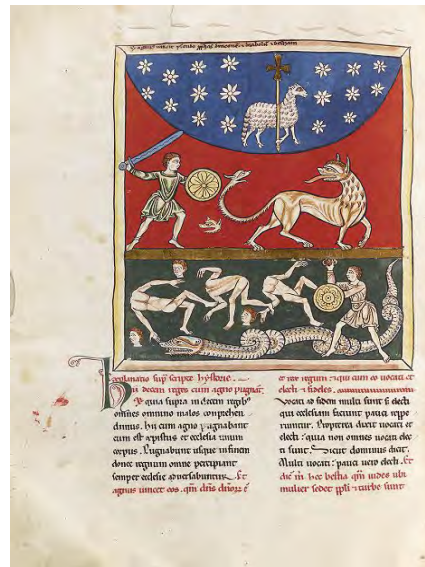 agnus vincit pseudo
Explanatio sup scripte hystorie.
hii decem reges cum agno pugnant.
quia supra in decem regibꝰ
omnes omnino malos conprehen
dimus. hii cum agno pugnabunt
cum est xpistus et ecclesia unum
corpus. Pugnabunt usque in finem
donec regnum omne percipiant
semper ecclesie adversabuntur. Et
agnus vincet eos. qm̄ dn̄s dn̄orꝝ ē
et rex regum. qui cum eo vocati et
electi & fideles.
Vocati ad fidem multi sunt si electi
qui ecclesiam faciunt pauci reppe
riuntur. Propterea dicit vocati et
electi. quia non omnes vocati elec
ti sunt. Sicut dominus dicit.
Multi vocati. pauci vero electi. Et
hec bestia qm̄ vides ubi
mulier sedet ppl̄i & turbe sunt